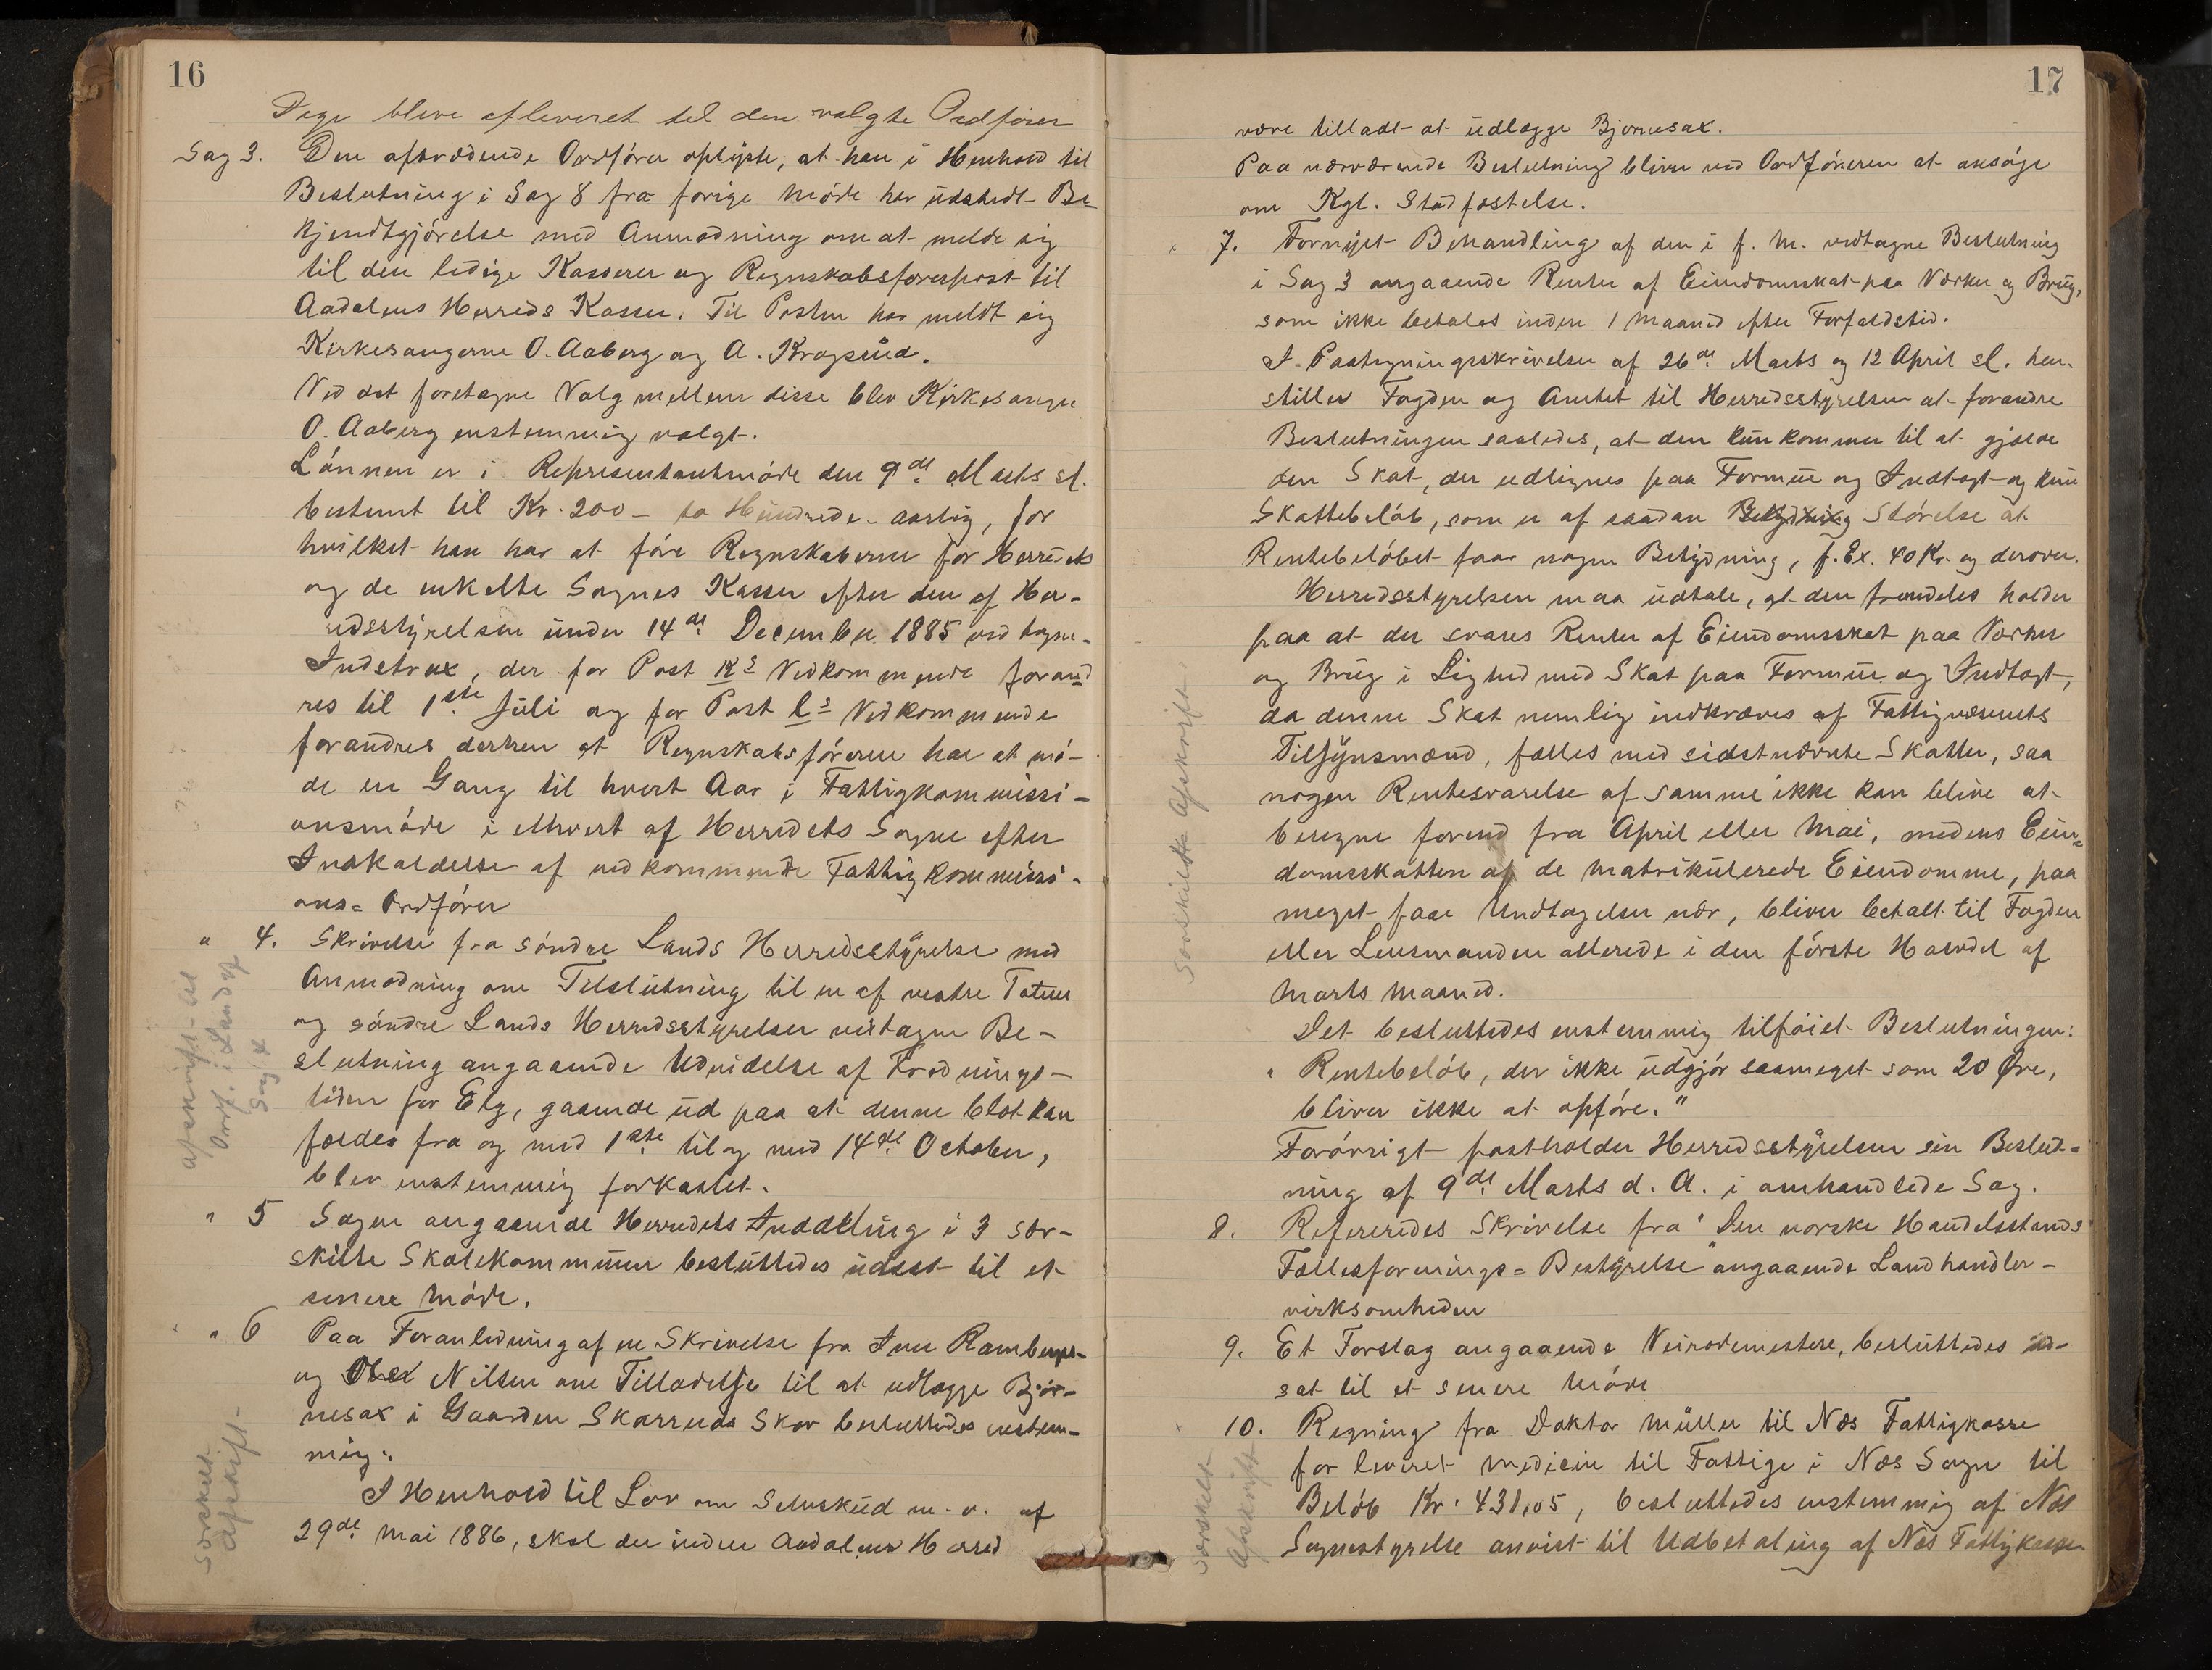 16
bleve afleveret til den valgte Ordfører
Sag 3. Den aftrædende Ordfører oplyste, at han i Henhold til
Beslutning i Sag 8 fra forige Møde har udstedt Be-
kjendtgjørelse med Anmodning om at melde sig
til den ledige Kasserer og Regnskabsførerpost til
Aadalens Herreds Kasser. Til Posten har meldt sig
Kirkesangerne O. Aaberg og A. Kragsrud.
Ved det foretagne Valg mellem disse blev Kirkesanger
O. Aaberg enstemmig valgt.
Lønnen er i Representantmøde den 9de Marts sl.
bestemt til Kr. 200 – to Hundrede – aarlig, for
hvilket han har at føre Regnskaberne for Herredets
og de enkelte Sognes Kasser efter den af Her-
redsstyrelsen under 14de December 1885 vedtagne
Instrux, der for Post K's Vedkommende foran-
res til 1ste Juli og for Post l's Vedkommende
forandres derhen at Regnskabsføreren har at mø-
de en Gang til hvert Aar i Fattigkommissi-
onsmøde i ethvert af Herredets Sogne efter
Indkaldelse af vedkommende Fattigkommissi-
ons= Ordfører
" 4. Skrivelse fra søndre Lands Herredsstyrelse med
Anmodning om Tilslutning til en af vestre Toten
og søndre Lands Herredsstyrelser vedtagne Be-
slutning angaaende Udvidelse af Frednings-
tiden for Elg, gaaende ud paa at denne blot kan
fældes fra og med 1ste til og med 14de October,
blev enstemmig forkastet.
afskrift til
Ordf. i Land af
Sag 4
" 5 Sagen angaaende Herredets Inddeling i 3 sær-
skilte Skolekommuner besluttedes udsat til et
senere Møde.
" 6 Paa Foranledning af en Skrivelse fra Iver Ramberg
og Nilsen om Tilladelse til at udlægge Bjør-
nesax i Gaarden Skarruds Skov besluttedes enstem-
mig:
I Henhold til Lov om Selvskud m. v. af
29de Mai 1886, skal der inden Aadalens Herred
Særskilt
Afskrift
17
være tilladt at udlægge Bjørnesax.
Paa nærværende Beslutning bliver ved Ordføreren at ansøge
om Kgl. Stadfæstelse.
7. Fornyet Behandling af den i f. M. vedtagne Beslutning
i Sag 3 angaaende Renter af Eiendomsskat paa Værker og Brug,
som ikke betales inden 1 Maaned efter Forfaldstid.
I Paategningsskrivelser af 26de Marts og 12 April sl. hen-
stiller Fogden og Amtet til Herredsstyrelsen at forandre
Beslutningen saaledes, at den kun kommer til at gjælde
den Skat, der udlignes paa Formue og Indtægt og kun
Skattebeløb, som er af saadan Betydning Størelse at
Rentebeløbet faar nogen Betydning, f. Ex. 40 Kr. og derover.
Herredsstyrelsen maa udtale, at den fremdeles holder
paa at der svares Renter af Eiendomsskat paa Værker
og Brug i Lighed med Skat paa Formue og Indtægt,
da denne Skat nemlig indkræves af Fattigvæsenets
Tilsynsmænd, fælles med sidstnævnte Skatter, saa
nogen Rentesvarelse af samme ikke kan blive at
beregne førend fra April eller Mai, medens Eien-
domsskatten af de matrikulerede Eiendomme, paa
meget faae Undtagelser nær, bliver betalt til Fogden
eller Lensmanden allerede i den første Halvdel af
Marts Maaned.
Det besluttedes enstemmig tilføiet Beslutningen:
" Rentebeløb, der ikke udgjør saameget som 20 Øre,
bliver ikke at opføre."
Forøvrigt fastholder Herredsstyrelsen sin Beslut-
ning af 9de Marts d. A. i omhandlede Sag.
Særskilte Afskrift
8. Refereredes Skrivelse fra "Den norske Handelsstands
Fællesforenings= Bestyrelse" angaaende Landhandler-
virksomheden
9. Et Forslag angaaende Veirodemestere, besluttedes ud-
sat til et senere Møde
10. Regning fra Doktor Müller til Næs Fattigkasse
for leveret Medicin til Fattige i Næs Sogn til
Beløb Kr. 431,05, besluttedes enstemmig af Næs
Sognestyrelse anvist til Udbetaling af Næs Fattigkasse
Særskilt
Afskrift